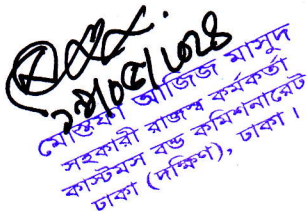 ২৯/০৫/২০২৪
মোস্তফা আজিজ মাসুদ
সহকারী রাজস্ব কর্মকর্তা
কাস্টমস বন্ড কমিশনারেট
ঢাকা (দক্ষিণ), ঢাকা।